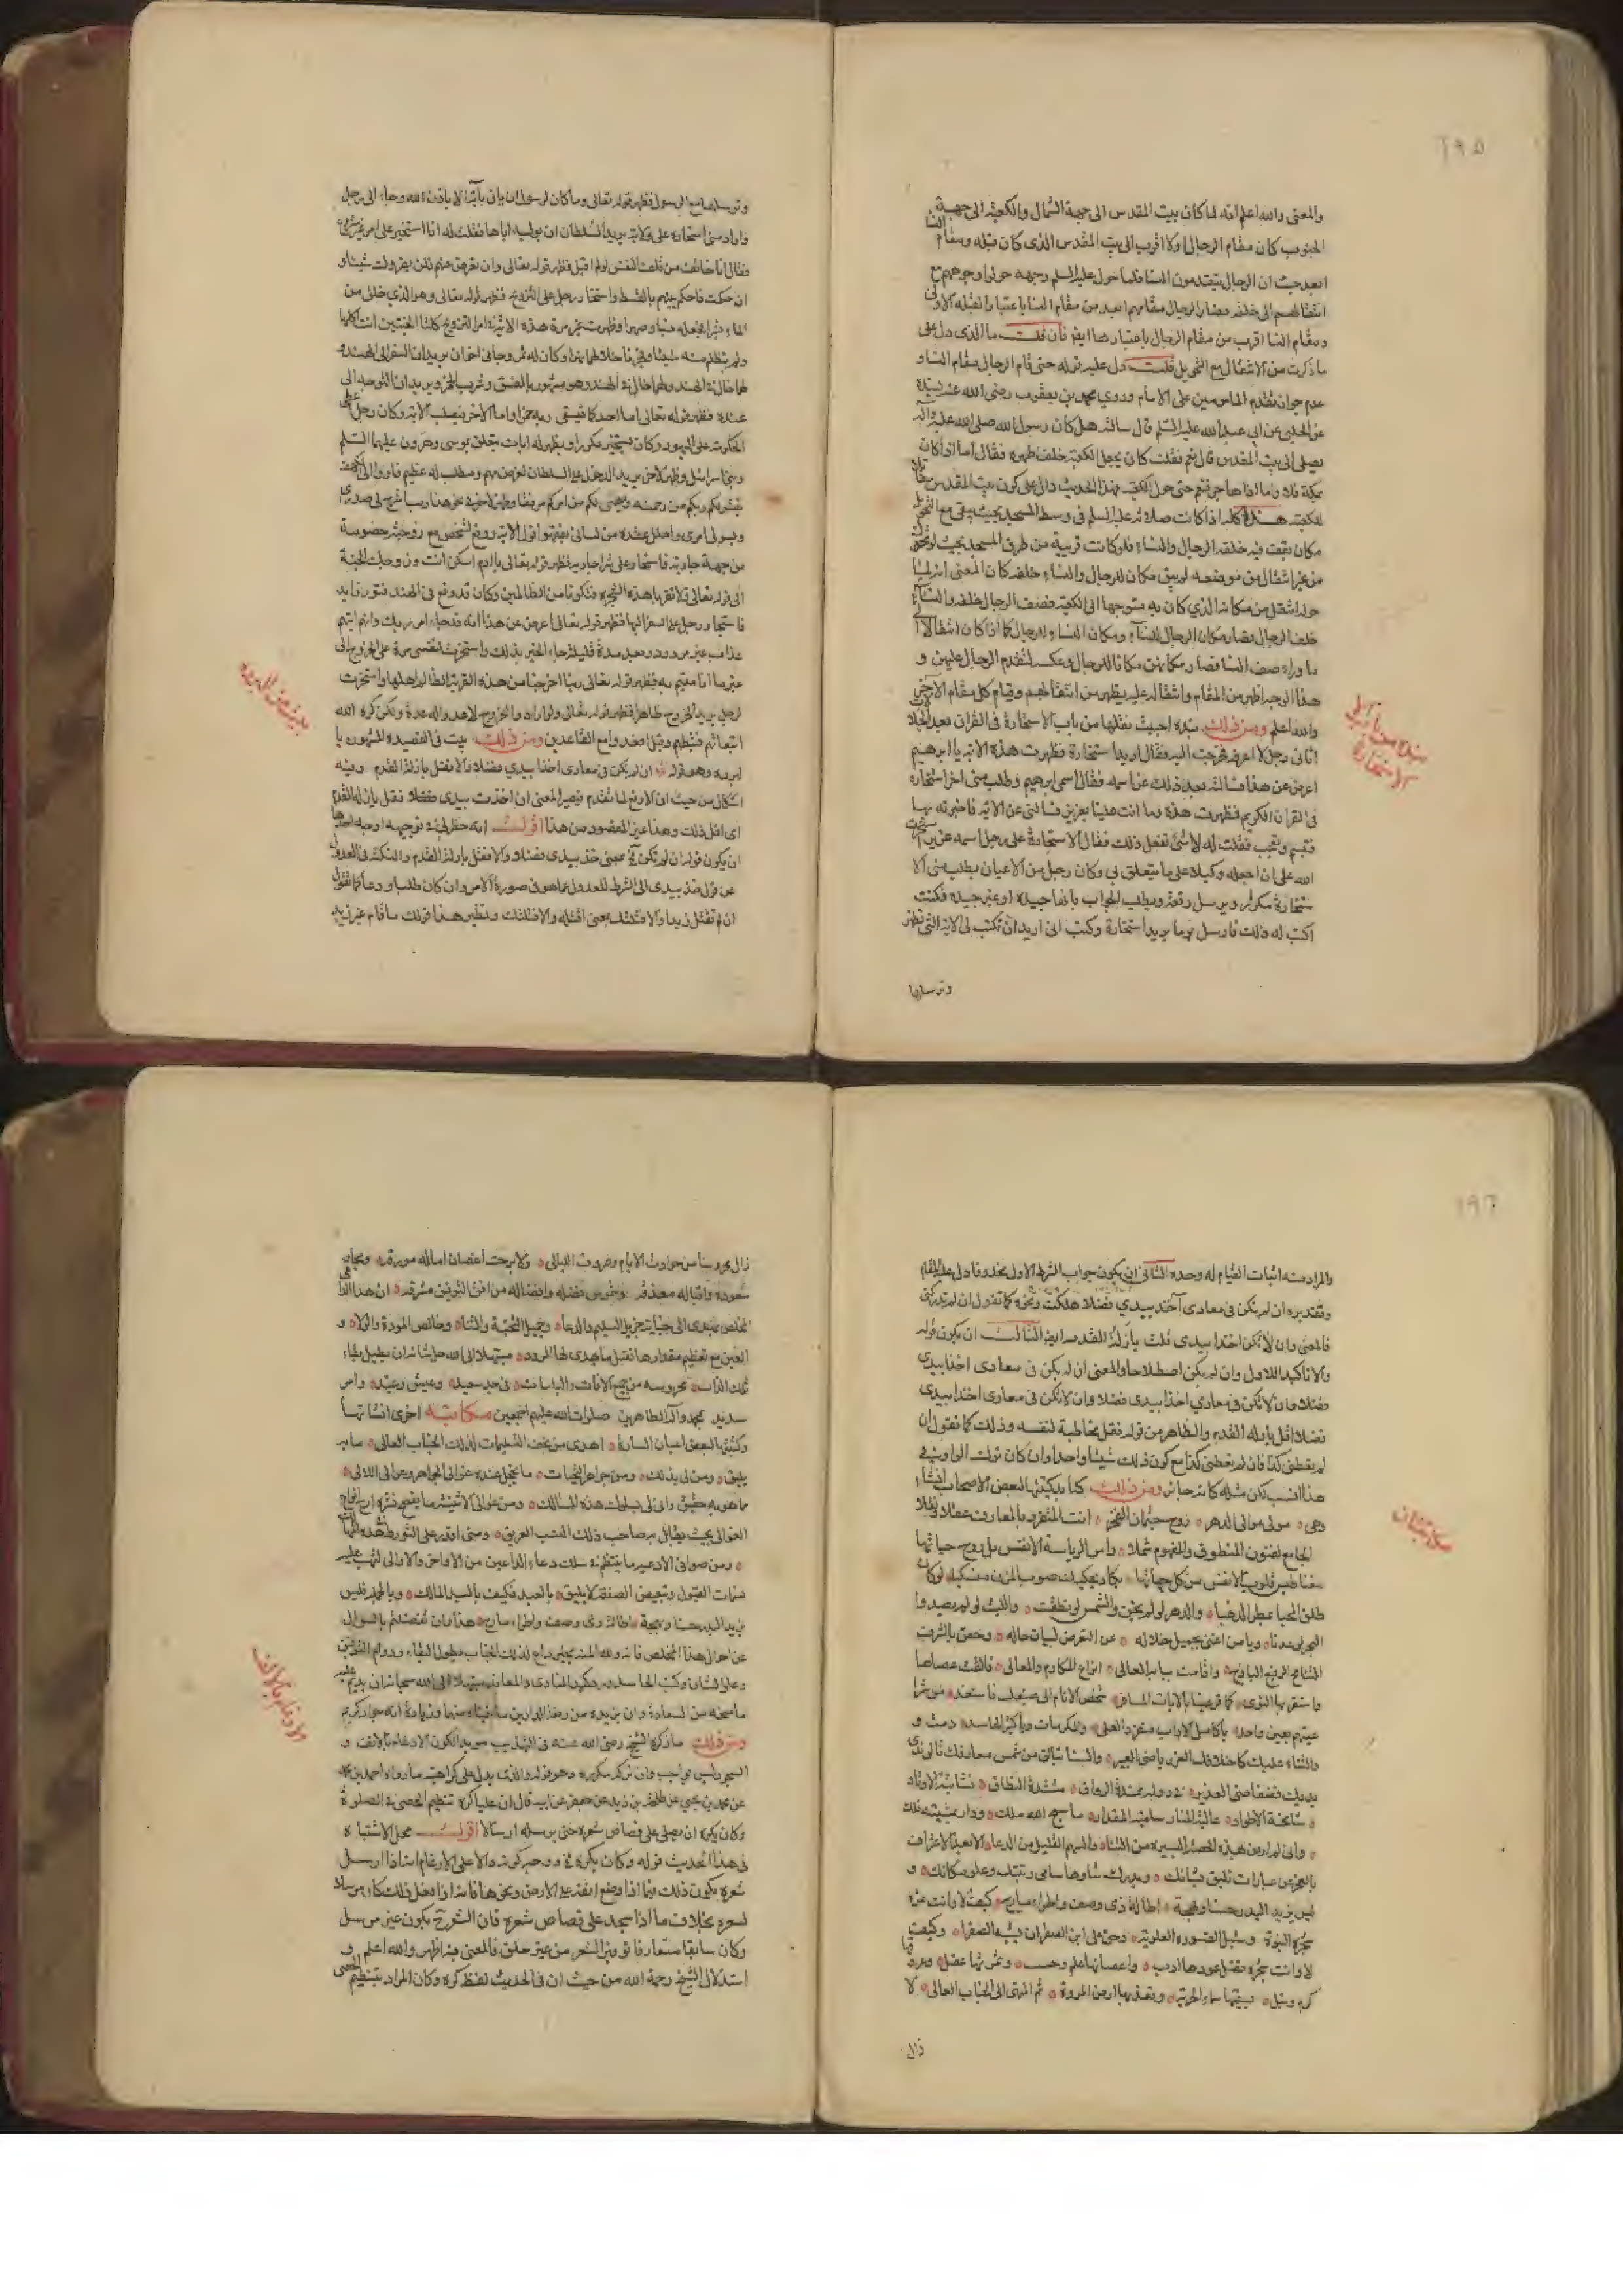 ١٩٥
والمعنى والله اعلم انه لما كان بيت المقدس الى جهة الشمال والكعبة الى جهة
الجنوب كان مقام الرجال اولا اقرب الى بيت المقدس الذى كان قبله ومقام النسا
ابعد حيث ان الرجال يتقدمون النسا فلما حول عليه السلم وجهه حولوا وجوههم مع
انتقالهم الى خلفه فصار الرجال مقامهم ابعد من مقام النسا باعتبار القبله الاولى
ومقام النسا اقرب من مقام الرجال باعتبارها ايض فان قلت ما الذى دل على
ما ذكرت من الانتقال مع التحويل قلت دل عليه قوله حتى قام الرجال مقام النسا و
عدم جواز تقدم المامومين على الامام وروي محمد بن يعقوب رضى الله عنه بسنده
عن الحلبى عن ابى عبد الله عليه السلم قال سالته هل كان رسول الله صلى الله عليه وآله
يصلى الى بيت المقدس قال نعم فقلت كان يجعل الكعبة خلف ظهره فقال اما اذا كان
بمكة فلا واما اذا هاجر فنعم حتى حول الكعبة فهذا الحديث دال على كون بيت المقدس
للكعبة هذا كله اذا كانت صلاته عليه السلم فى وسط المسجد بحيث يبقى مع التحول
مكان يقف فيه خلفه الرجال والنساء فلو كانت قريبة من طرف المسجد بحيث لو تحول
من غير انتقال من موضعه لم يبق مكان للرجال والنساء خلفه كان المعنى انه لما
حول انتقل من مكانه الذي كان به متوجها الى الكعبة فصف الرجال خلفه والنساء
خلف الرجال فصار مكان الرجال للنساء ومكان النساء للرجال كما اذا كان انتقالا الى
ما وراء صف النسا فصار مكانهن مكانا للرجال وعكسه لتقدم الرجال عليهن و
هذا الوجه اظهر من المقام وانتقاله عليه يظهر من انتقالهم وقيام كل مقام الاخر
والله اعلم ومن ذلك نبذة احببت نقلها من باب الاستخارة فى القران
اتانى رجل لا اعرفه فرحبت اليه فقال اريد استخارة فظهرت هذه الاية يا ابرهيم
اعرض عن هذا فسالته بعد ذلك عن اسمه فقال اسمى ابرهيم وطلب منى اخر استخاره
فى القران الكريم فظهرت هذه وما انت علينا بعزيز فسالنى عن الاية فاخبرته بها
فتبسم وتعجب فقلت له لاى شئ تفعل ذلك فقال الاستخارة على رجل اسمه عزيز
الله على ان اجعله وكيلا على ما يتعلق بى وكان رجل من الاعيان يطلب منى الا
ستخارة مكررا ويرسل رقعة ويطلب الجواب بانها جيدة او غير جيده فكنت
اكتب له ذلك فارسل يوما يريد استخارة وكتب الى اريد ان تكتب لى الاية التى تظهر
وترسلها
نبذة من باب
الاستخارة
وترسلها مع الرسول فظهر قوله تعالى وما كان لرسول ان ياتى بآية الا باذن الله وجاء الى رجل
واراد منى استخارة على ولاية يريد السلطان ان يوليه اياها فقلت له انا استخير على امر غير
فقال انا خائف من تلف النفس لو لم اقبل فظهر قوله تعالى وان تعرض عنهم فلن يضروك شيئا و
ان حكمت فاحكم بينهم بالقسط واستخار رجل على التزويج فظهر قوله تعالى وهو الذي خلق من
الماء بشرا فجعله نسبا وصهرا وظهرت غير مرة هذه الاية لامر التزويج كلتا الجنتين اتت اكلها
ولم تظلم منه شيئا
لهما خال فى الهند وهو مشهور بالفسق وشرب الخمر ويريدان التوجه الى
عنده فظهر قوله تعالى اما احدكما فيسقى ربه خمرا واما الاخر فيصلب الاية وكان رجل
الحكومة على اليهود وكان يستخير مكررا ويظهر له ايات يتعلق بموسى وهرون عليهما السلم
وبنى اسرائيل وظهر لاخر يريد الدخول على السلطان لغرض مهم ومطلب له عظيم فاووا الى الكهف
ينشر لكم ربكم من رحمته ويهيى لكم من امركم مرفقا وظهر لاخر فى نحو هذا رب اشرح لى صدرى
ويسر لى امرى واحلل عقدة من لسانى يفقهوا قولى الاية ووقع لشخص مع زوجته خصومة
من جهة جارية فاستخار على شراء جارية فظهر قوله تعالى يا ادم اسكن انت وزوجك الجنة
الى قوله تعالى ولا تقربا هذه الشجرة فتكونا من الظالمين وكان قد وقع فى الهند فتور زايد
فاستخار رجل على السفر اليها فظهر قوله تعالى اعرض عن هذا انه قد جاء امر ربك وانهم اتيهم
عذاب غير مردود وبعد مدة قليلة جاء الخبر بذلك واستخرت لنفسى مرة على الخروج الى
غير ما انا مقيم به فظهر قوله تعالى ربنا اخرجنا من هذه القرية الظالم اهلها واستخرت
لرجل يريد الخروج ظاهرا فظهر قوله تعالى ولو ارادوا الخروج لاعدوا له عدة ولكن كره الله
انبعاثهم فثبطهم وقيل اقعدوا مع القاعدين ومن ذلك بيت فى القصيده المشهورة با
لبردة وهو قوله ان لم يكن فى معادى اخذا بيدي فضلا والا فقل يا زلة القدم وفيه
اشكال من حيث ان الا رفع لما تقدم فيصير المعنى ان اخذت بيدى فضلا فقل يا زلة القدم
اى اقل ذلك وهذا غير المقصود من هذا اقول انه خطر لى فى توجيهه اوجه احدها
ان يكون قوله ان لم تكن فى بمعنى خذ بيدى فضلا والا فقل يا زلة القدم والنكتة فى العدول
عن قول خذ بيدى الى الشرط للعدول عما هو فى صورة الامر وان كان طلبا ودعاء كما تقول
ان لم تقتل زيدا والا قتلتك بمعنى اقتله والا قتلتك ونظير هذا قولك ما قام غير زيد
بيت من البردة
١٩٦
والمراد منه اثبات القيام له وحده الثانى ان يكون جواب الشرط الاول محذوفا دل عليه المقام
وتقديره ان لم يكن فى معادى آخذ بيدي فضلا هلكت ونحوه كما تقول ان لم تدركنى
فالمعنى وان لا تكن اخذا بيدى قلت يا زلة القدم ايض الثالث ان يكون قوله
والا تاكيد للاول وان لم يكن اصطلاحا والمعنى ان لم يكن فى معادى اخذا بيدى
فضلا وان لا تكن فى معادي اخذا بيدى فضلا وان لا تكن فى معادى اخذا بيدى
فضلا اقل يا زلة القدم والظاهر من قوله فقل مخاطبة لنفسه وذلك كما تقول ان
لم يعطنى كذا فان لم يعطنى كذا مع كون ذلك شيئا واحدا وان كان ترك الواو فى
هذا انسب لكن مثله كانه جايز ومن ذلك كتابة كتبتها لبعض الاصحاب
وهى مولى موالى الدهر روح جثمان الفخر انت المتفرد بالمعارف عقلا ونقلا
الجامع لفنون المنطوق والمفهوم شملا راس الرياسة الانفس بل روح حياتها
مغناطيس قلوب الانفس من كل جهاتها يكاد يحكيك صوب المزن منسكبا لو كان
طلق المحيا يمطر الذهبا والدهر لو لم يخن والشمس لو نطقت والليث لو لم يصد و
البحر لو عذبا ويا من اغنى بجميل خلاله عن التعرض لبيان حاله وخص بالشرف
الشامخ الرفيع الباذخ واقامت ببابه المعالى انواع المكارم والمعالى فالقت عصاها
واستقر بها النوى كما قر عينا بالاياب المسافر
عينهم بعين واحد يا كامل الاداب منفرد العلى والمكرمات ويا كثير الحاسد دمت و
والثناء عليك كاخلاقك الغر
يديك
شامخة الاطواد عالية المنار سامية المقدار ما سبح الله ملك ودار بمشيته فلك
وانى لم ار من هذه القصة اليسيره من الثناء والسهم القليل من الدعاء الا بعد الاعتراف
بالعجز عن عبارات تليق بشانك ويدرك شاوها سامى رتبتك وعلو مكانك و
ليس يزيد البدر حسنا وبهجة اطالة ذى وصف واطراء مادح كيف لا وانت غرة
شجرة النبوة وسليل الصفوة العلوية
لا وانت شجرة فضل عودها ادب واغصانها علم وحسب وثمرتها عقل وعروقها
كرم ونبل يسقيها سماء الحرية وتغذيها ارض المروة ثم المنهى الى الجناب العالى لا
زال
مكاتبتان
زال محروسا من حوادث الايام وصروف الليالى ولا برحت اغصان اماله مورقه
سعوده واقباله مغدقه وشموس فضله وافضاله من افق التوفيق مشرقه ان هذا الداعى
المخلص يهدى الى جنابه جزيل التسليم والدعاء وجميل التحية والثناء وخالص المودة والولاء و
مبتهلا الى الله جل شانه ان يطيل بقاء
تلك الذات محروسه من جميع الافات والباسات فى جد سعيد وعيش رغيد وامر
سديد بمحمد وآله الطاهرين صلوات الله عليهم اجمعين مكاتبة اخرى انشاتها
وكتبتها لبعض اعيان السادة اهدى من تحف التسليمات لذلك الجناب العالى ما به
يليق ومن لى بذلك ومن جواهر التحيات ما يخجل عنده غوالى الجواهر وعوالى اللالى
ما هو به حقيق وانى لى بسلوك هذه المسالك ومن غوالى الاثنية ما يفضح نشره ارج انواع
الغوالى بحيث يقابل به صاحب ذلك النسب العريق ومتى اقدر على التورط هذه المهالك
ومن صوافى الادعيه ما ينتظم فى سلك دعاء الداعين من الاواخر والاوالى لتهب عليه
نسمات القبول وتبعيض الصفقة لا يليق بالعبد فكيف بالسيد المالك وبالجملة فليس
يزيد البدر حسنا وبهجة اطالة ذى وصف واطراء مادح هذا وان تفضلتم بالسؤال
عن احوال هذا المخلص فانه ولله الحمد بخير داع لذلك الجناب بطول البقاء ودوام التوفيق
وعلو الشان وكبت الحاسد
ما منحه من السعادة وان يزيده من رفعة الدارين ما فيهما وزيادة انه جواد كريم
ومن ذلك ما ذكره الشيخ رضى الله عنه فى التهذيب مويدا لكون الارغام بالانف و
السجود ليس بواجب وان تركه مكروه وهو قوله والذى يدل على كراهته ما رواه احمد بن محمد
عن محمد بن يحيى عن طلحة بن زيد عن جعفر عن ابيه قال ان عليا كره تنظيم الحصى فى الصلوة
وكان يكره ان يصلى على قصاص شعره حتى يرسله ارسالا اقول محل الاشتباه
فى هذا الحديث قوله وكان يكره ووجه كونه دالا على الارغام انه اذا ارسل
شعره يكون ذلك فيما اذا وضع انفه على الارض ونحوها فانه اذا فعل ذلك كان مرسلا
لشعره بخلاف ما اذا سجد على قصاص شعره فان الشعر ح يكون غير مرسل
وكان سابقا متعارفا توفير الشعر من غير حلق فالمعنى فيه اظهر والله اعلم و
استدلال الشيخ رحمة الله من حيث ان فى الحديث لفظ كره وكان المراد بتنظيم الحصى
الارغام بالانف